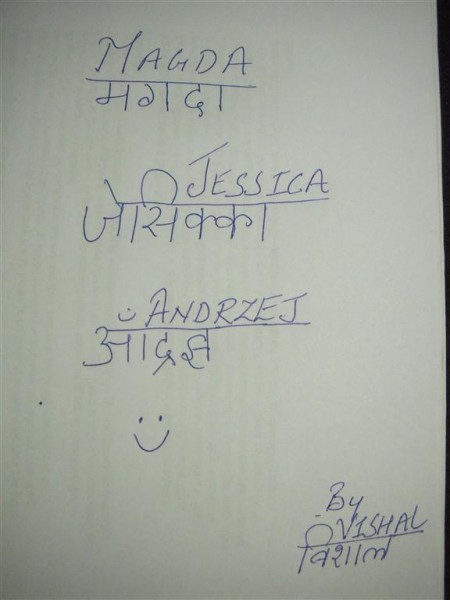 MAGDA
मगदा
JESSICA
जेसिक्का
ANDRZEJ
By
VISHAL
विशाल